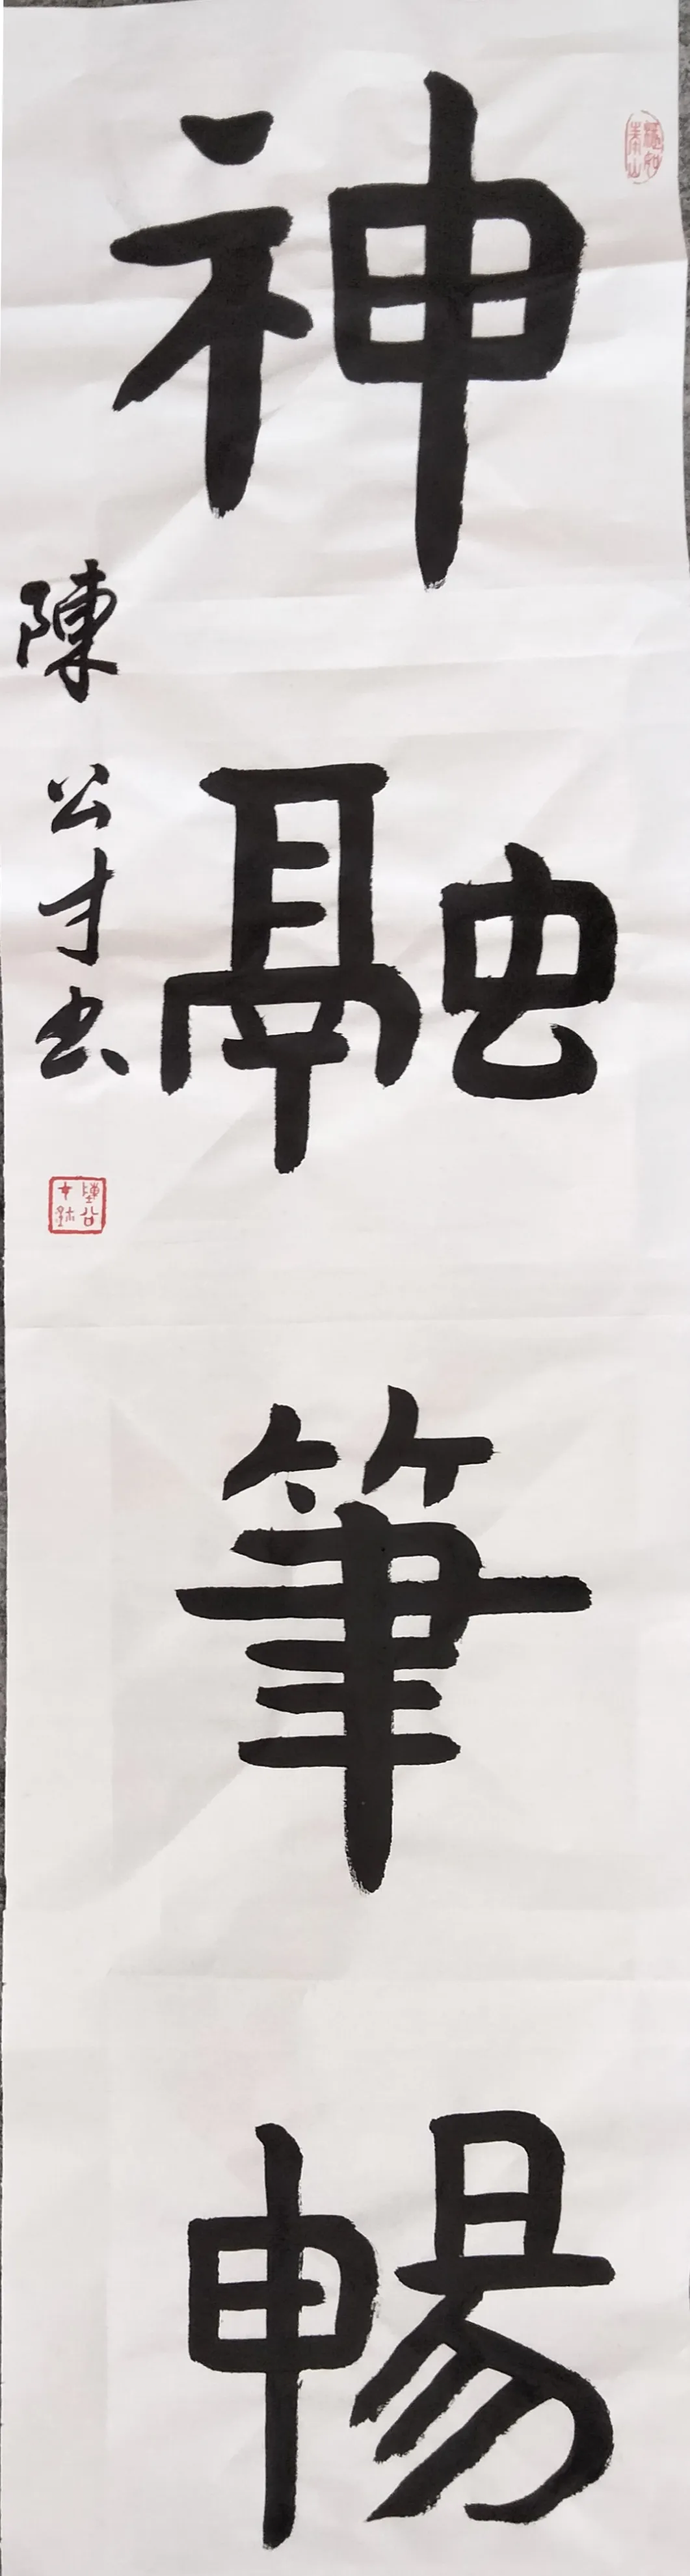 神融筆暢
陳公才书